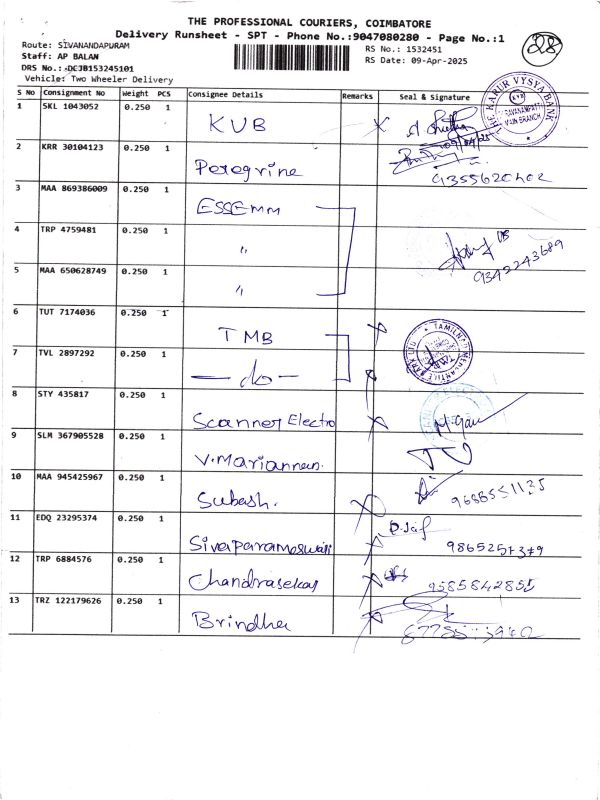 THE PROFESSIONAL COURIERS, COIMBATORE
Delivery Runsheet - SPT - Phone No.:9047080280 - Page No.:1
28
Route: SIVANANDAPURAM
Staff: AP BALAN
DRS No.:.DCJB153245101
Vehicle: Two Wheeler Delivery
RS No.: 1532451
RS Date: 09-Apr-2025
S No Consignment No Weight PCS Consignee Details Remarks Seal & Signature
1 SKL 1043052 0.250 1 KVB
THE KARUR VYSYA BANK
KVB
MAIN BRANCH
2 KRR 30104123 0.250 1 Peregrine
3 MAA 869386009 0.250 1 ESSEMM
4 TRP 4759481 0.250 1 "
9342243689
5 MAA 650628749 0.250 1 "
6 TUT 7174036 0.250 1 TMB
TAMILNAD MERCANTILE BANK LTD
7 TVL 2897292 0.250 1 — do —
8 STY 435817 0.250 1 Scanner Electro
9 SLM 367905528 0.250 1 V. Mariannan.
10 MAA 945425967 0.250 1 Subash.
9688551135
11 EDQ 23295374 0.250 1 Sivaparameswari
9865257379
12 TRP 6884576 0.250 1 Chandrasekar
9585842855
13 TRZ 122179626 0.250 1 Brindha